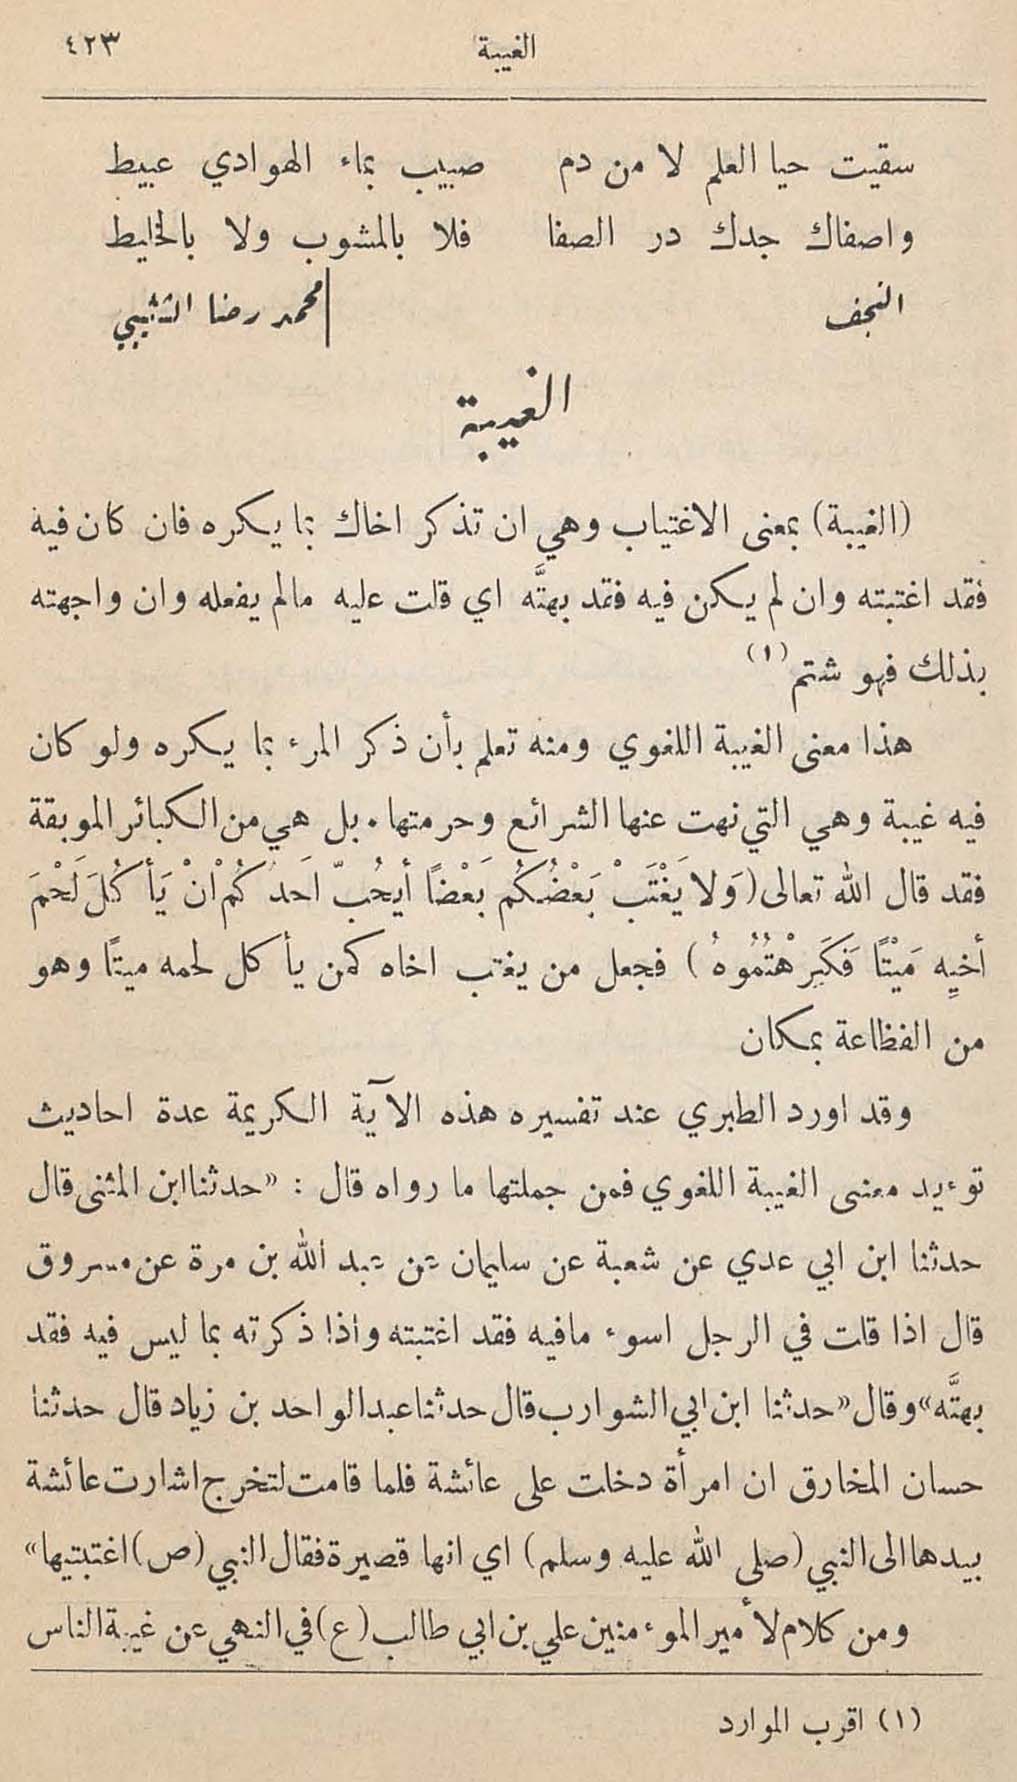 الغيبة ٤٢٣
سقيت حيا العلم لا من دم صبيب بماء الهوادي عبيط
واصفاك جدك در الصفا فلا بالمشوب ولا بالخليط
النجف محمد رضا الشبيبي
الغيبة
(الغيبة) بمعنى الاغتياب وهي ان تذكر اخاك بما يكره فان كان فيه
فقد اغتبته وان لم يكن فيه فقد بهتَّه اي قلت عليه مالم يفعله وان واجهته
بذلك فهو شتم (١)
هذا معنى الغيبة اللغوي ومنه تعلم بأن ذكر المرء بما يكره ولو كان
فيه غيبة وهي التي نهت عنها الشرائع وحرمتها. بل هي من الكبائر الموبقة
فقد قال الله تعالى (وَلا يَغْتَبْ بَعْضُكُم بَعْضًا أيحُبّ اَحَدُكُمْ انْ يَأكُلَ لَحْمَ
أخيِه مَيْتًا فَكَرِهْتُمُوهُ) فجعل من يغتب اخاه كمن يأكل لحمه ميتًا وهو
من الفظاعة بمكان
وقد اورد الطبري عند تفسيره هذه الآية الكريمة عدة احاديث
توءيد معنى الغيبة اللغوي فمن جملتها ما رواه قال : «حدثنا ابن المثنى قال
حدثنا ابن ابي عدي عن شعبة عن سليمان عن عبد الله بن مرة عن مسروق
قال اذا قلت في الرجل اسوء مافيه فقد اغتبته واذا ذكرته بما ليس فيه فقد
بهتَّه» وقال «حدثنا ابن ابي الشوارب قال حدثنا عبد الواحد بن زياد قال حدثنا
حسان المخارق ان امرأة دخلت على عائشة فلما قامت لتخرج اشارت عائشة
بيدها الى النبي (صلى الله عليه وسلم) اي انها قصيرة فقال النبي (ص) اغتبتيها»
ومن كلام لأمير الموءمنين علي بن ابي طالب (ع) في النهي عن غيبة الناس
(١) اقرب الموارد